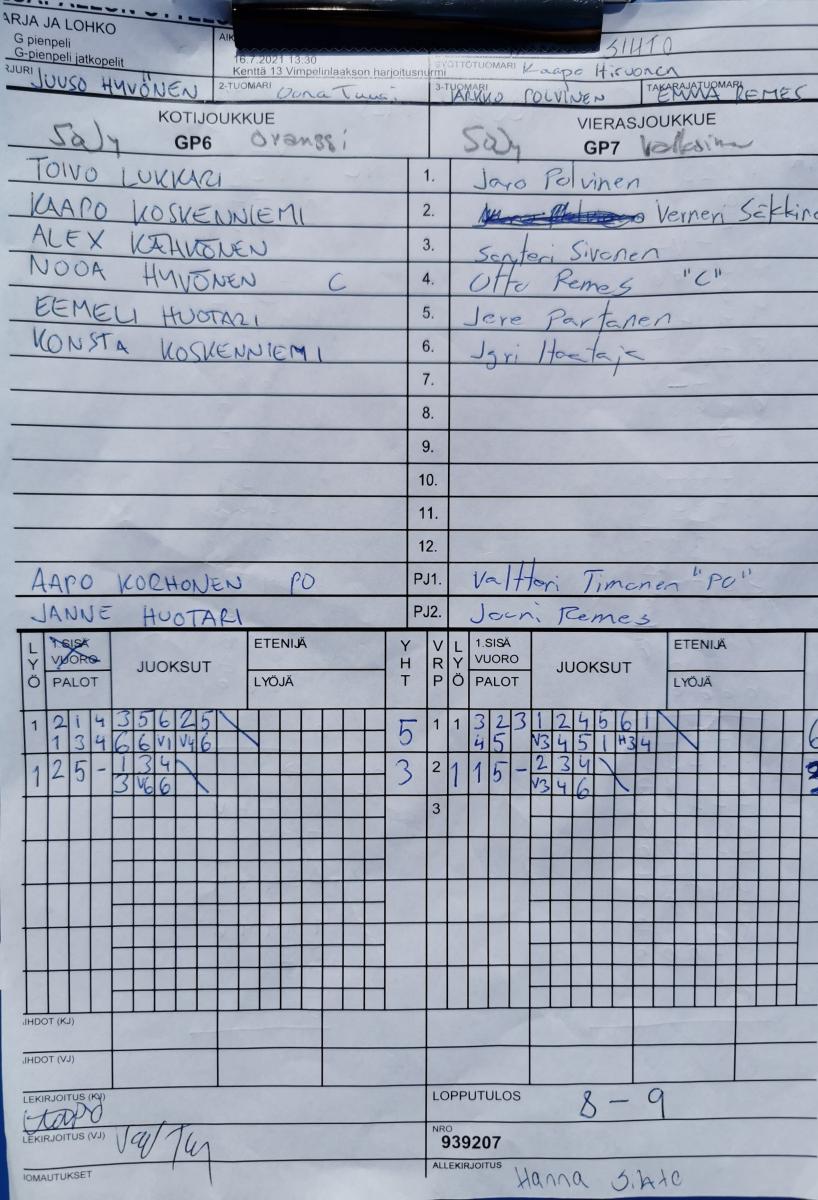 ARJA JA LOHKO
G pienpeli
G-pienpeli jatkopelit
16.7.2021 13:30
Kenttä 13 Vimpelinlaakson harjoitusnurmi
SIHTO
YÖTTÖTUOMARI Kaapo Hirvonen
JUURI JUUSO HYVÖNEN 2-TUOMARI Oona 3-TUOMARI JARKKO POLVINEN TAKARAJATUOMARI EMMA REMES
KOTIJOUKKUE VIERASJOUKKUE
SaJy GP6 oranssi SaJy GP7
TOIVO LUKKARI 1. Jaro Polvinen
KAAPO KOSKENNIEMI 2. Verneri Säkkine
ALEX KÄHKÖNEN 3. Santeri Sivonen
NOOA HYVÖNEN C 4. Otto Remes "C"
EEMELI HUOTARI 5. Jere Partanen
KONSTA KOSKENNIEMI 6. Jyri Haataja
7.
8.
9.
10.
11.
12.
AAPO KORHONEN PO PJ1. Valtteri Timonen "PO"
JANNE HUOTARI PJ2. Jouni Remes
LYÖ 1.SISÄ VUORO PALOT JUOKSUT ETENIJÄ LYÖJÄ YHT VRP LYÖ 1.SISÄ VUORO PALOT JUOKSUT ETENIJÄ LYÖJÄ
1 2 1 4 3 5 6 2 5 5 1 1 3 2 3 1 2 4 5 6 1 6
1 3 4 6 6 V1 V4 6 4 5 V3 4 5 1 H3 4
1 2 5 - 1 3 4 3 2 1 1 5 - 2 3 4 3
3 V6 6 V3 4 6
3
IHDOT (KJ)
IHDOT (VJ)
LEKIRJOITUS (KJ)
LOPPUTULOS 8 - 9
LEKIRJOITUS (VJ)
NRO
939207
IOMAUTUKSET
ALLEKIRJOITUS Hanna Sihto